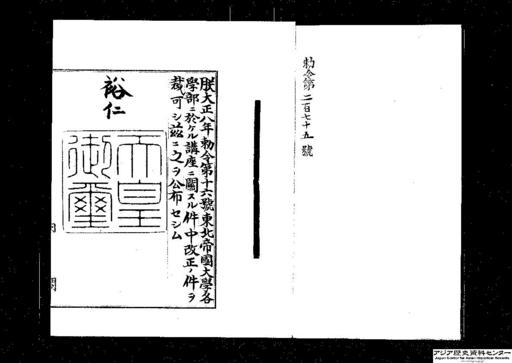 勅令第二百七十五號
朕大正八年勅令第十六號東北帝國大學各
學部ニ於ケル講座ニ關スル件中改正ノ件ヲ
裁可シ茲ニ之ヲ公布セシム
裕仁
天皇
御璽
内
閣
アジア歴史資料センター
Japan Center for Asian Historical Records